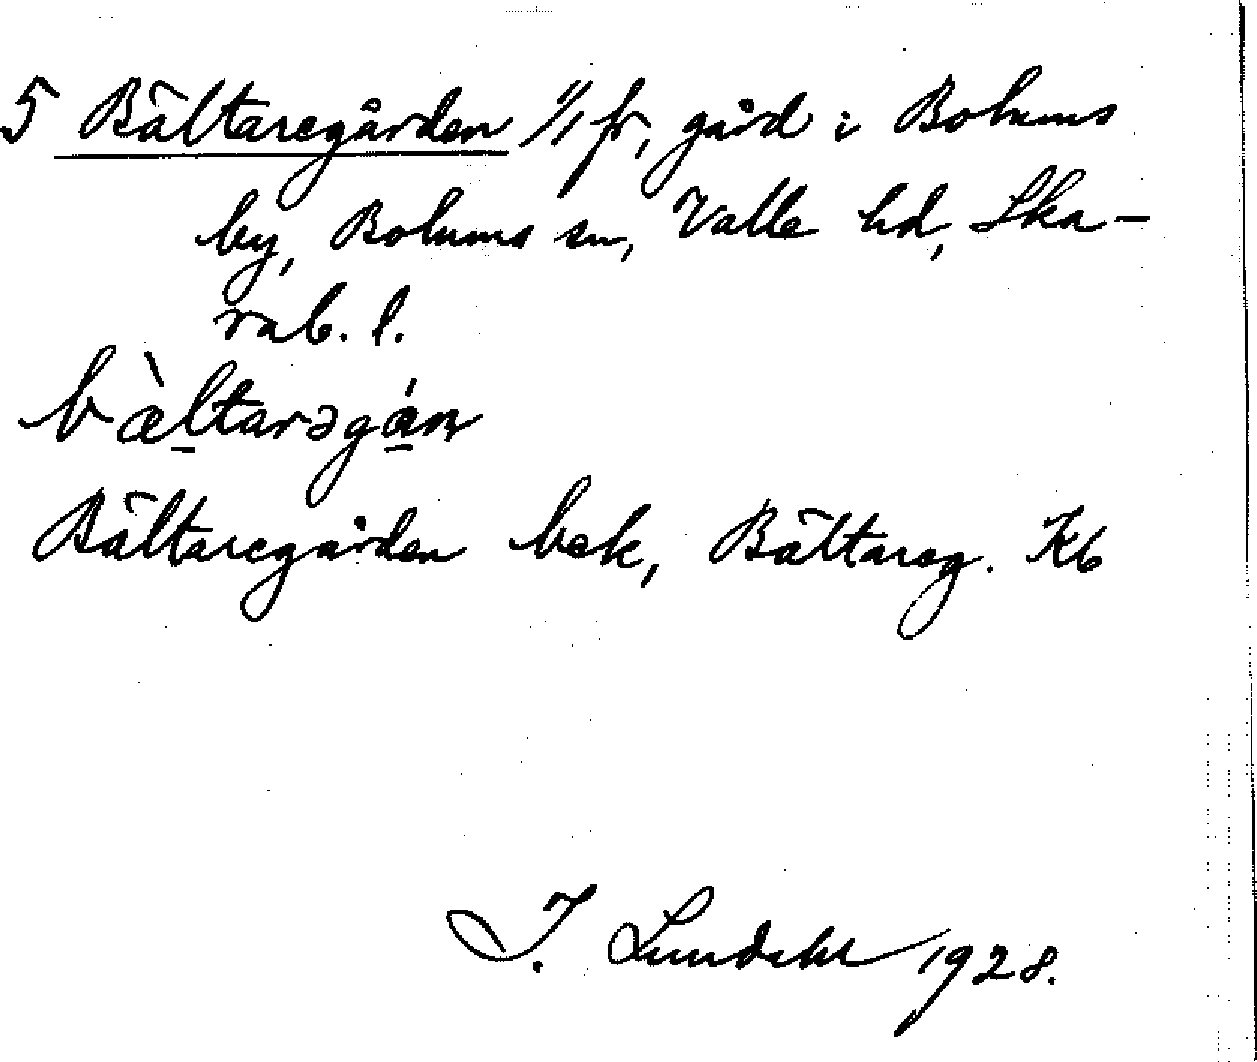 5 Bältaregården 1/1 fr, gård i Bolums
by, Bolums sn, Valle hd, Ska-
rab. l.
bæ̀ltarəgán
Bältaregården bek, Bältareg. Kb
I. Lundahl 1928.